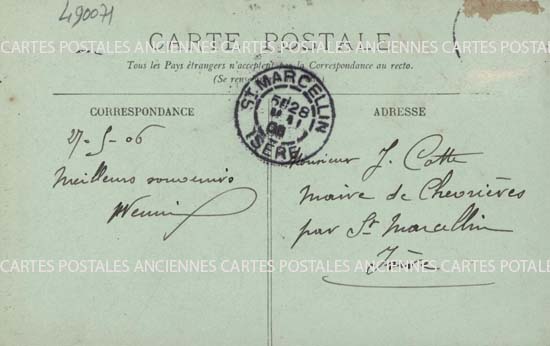 490071
CARTE POSTALE
CARTES POSTALES ANCIENNES CARTES POSTALES ANCIENNES CARTES POTALES
Tous les Pays étrangers n'acceptent pas la Correspondance au recto.
(Se ren
ST. MARCELLIN
28
ISÈRE
CORRESPONDANCE
ADRESSE
27-5-06
Meilleurs souvenirs
Monsieur J. Cotte
Maire de Chevrières
par St Marcellin
Isère
CARTES POSTALES ANCIENNES CARTES POSTALES ANCIENNES CARTES POTALES